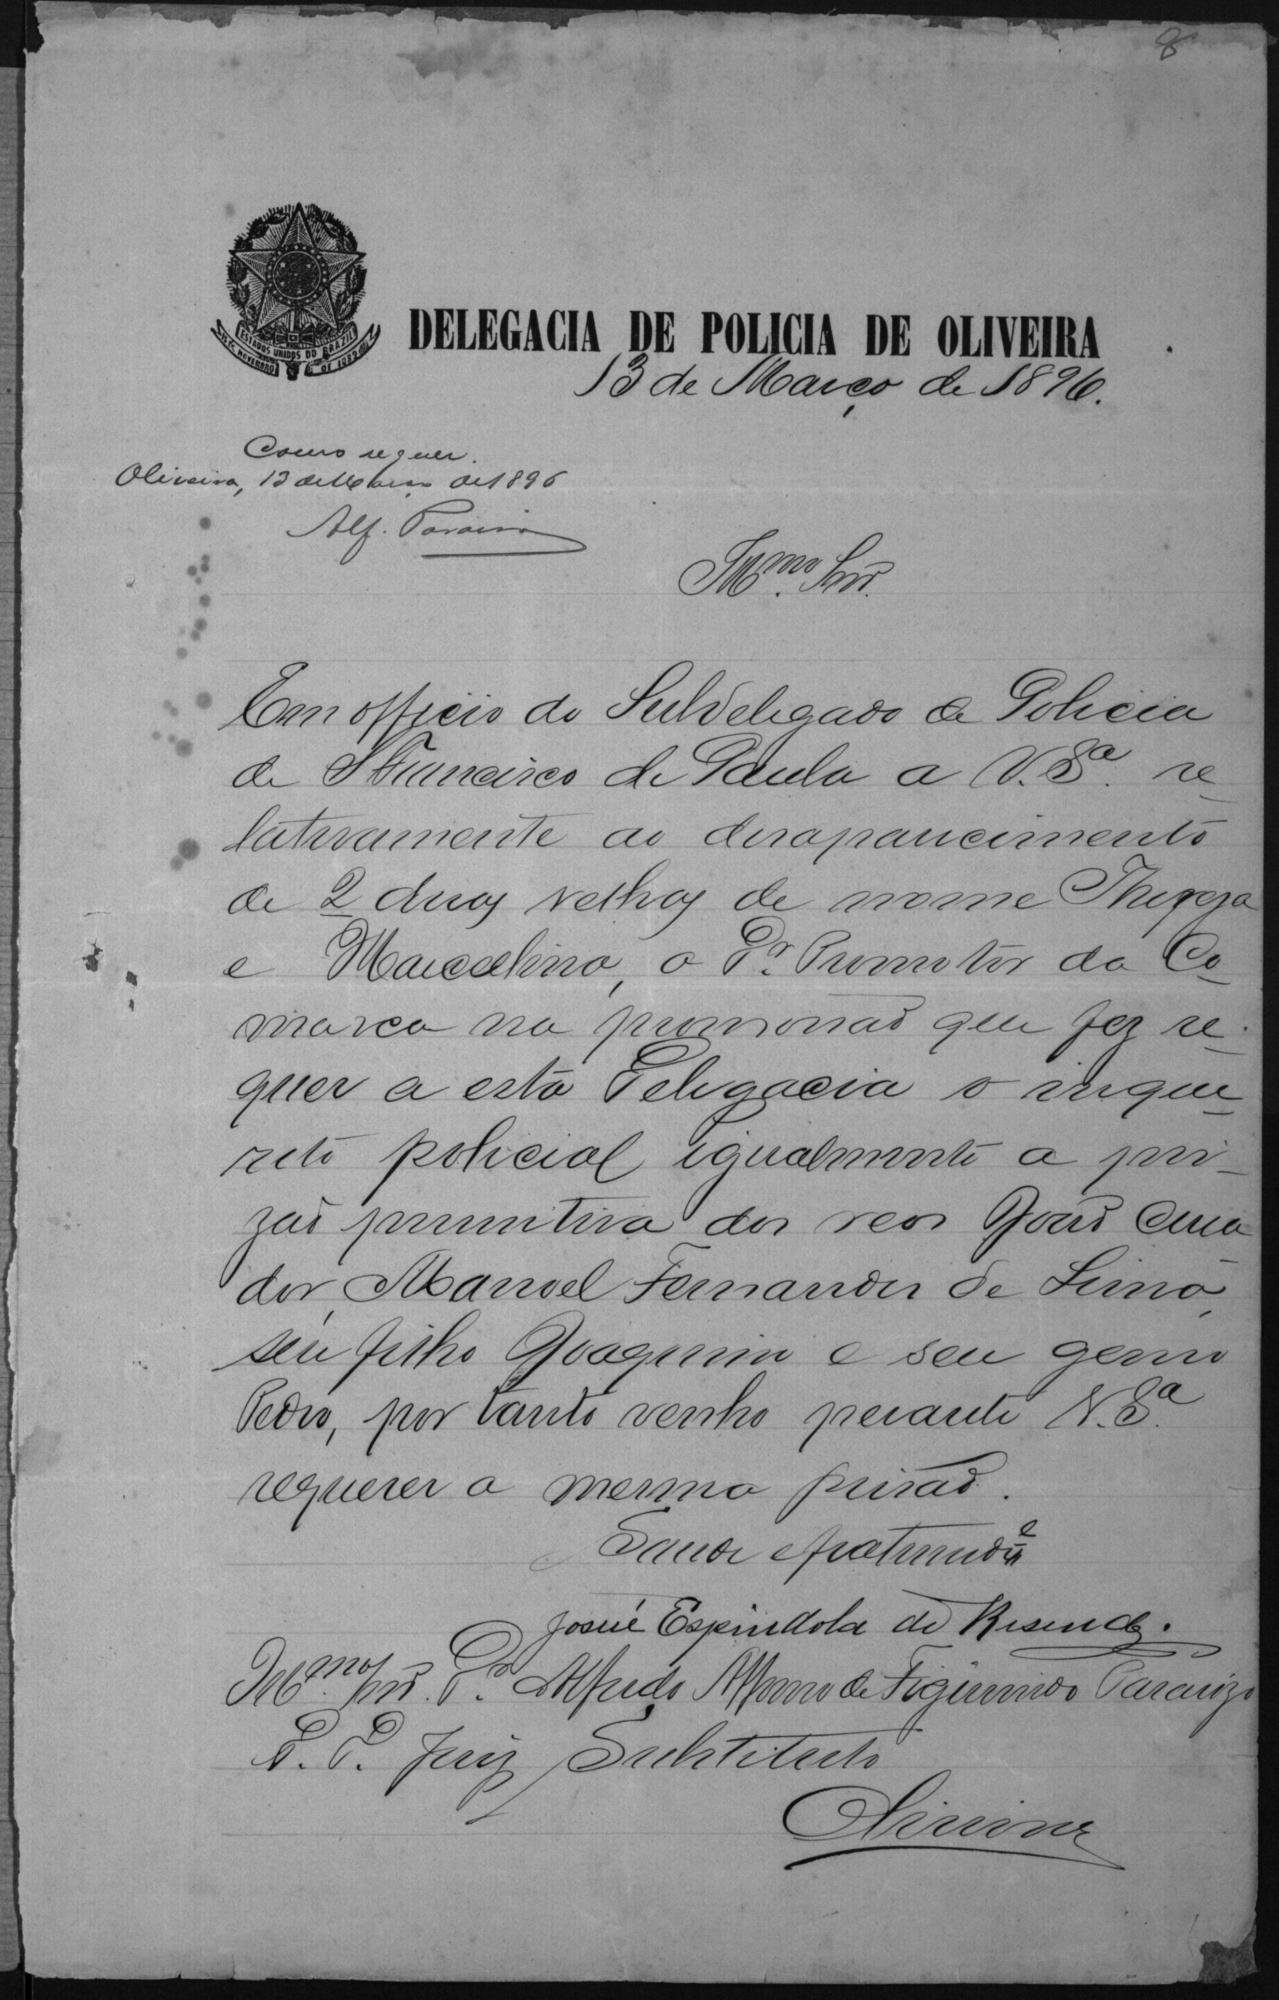 8
ESTADOS UNIDOS DO BRAZIL
15 DE NOVEMBRO DE 1889
DELEGACIA DE POLICIA DE OLIVEIRA
13 de Março de 1896.
Como requer.
Oliveira, 13 de Março de 1896
Alf. Paraizo
Illmo. Snr.
Em officio do Subdelegado de Policia
de S Francisco de Paula a V. Sa. re_
lativamente ao desapparecimento
de 2 duas velhas de nome Thereza
e Marcelina, o Dr. Promotor da Co_
marca na promoção que fez re_
quer a esta Delegacia o inque_
rito policial igualmente a pri_
zão preventiva dos reos João Ama
dor, Manoel Fernandes de Lima,
seu filho Joaquim e seu genro
Pedro, por tanto venho perante V. Sa.
requerer a mesma prisão.
Saude e fraternide
Josué Espindola de Resende.
Illmo. Snr. Dr. Alfredo Affonso de Figueiredo Paraizo
D. D. Juiz Substituto
Oliveira